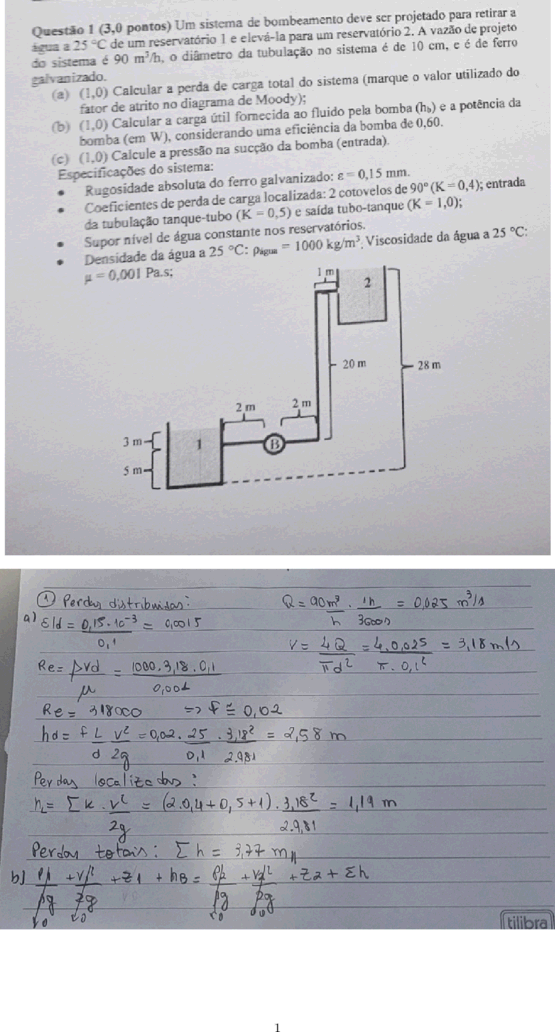 Questão 1 (3,0 pontos) Um sistema de bombeamento deve ser projetado para retirar a
água a 25 °C de um reservatório 1 e elevá-la para um reservatório 2. A vazão de projeto
do sistema é 90 m³/h, o diâmetro da tubulação no sistema é de 10 cm, e é de ferro
galvanizado.
(a) (1,0) Calcular a perda de carga total do sistema (marque o valor utilizado do
fator de atrito no diagrama de Moody);
(b) (1,0) Calcular a carga útil fornecida ao fluido pela bomba (hᵦ) e a potência da
bomba (em W), considerando uma eficiência da bomba de 0,60.
(c) (1,0) Calcule a pressão na sucção da bomba (entrada).
Especificações do sistema:
• Rugosidade absoluta do ferro galvanizado: ε = 0,15 mm.
• Coeficientes de perda de carga localizada: 2 cotovelos de 90° (K = 0,4); entrada
da tubulação tanque-tubo (K = 0,5) e saída tubo-tanque (K = 1,0);
• Supor nível de água constante nos reservatórios.
• Densidade da água a 25 °C: ρágua = 1000 kg/m³. Viscosidade da água a 25 °C:
μ = 0,001 Pa.s;
1 m
2
20 m
28 m
2 m
2 m
3 m
1
B
5 m
① Perdas distribuidas:
Q = 90 m³/h . 1h/3600s = 0,025 m³/s
a) ε/d = 0,15.10⁻³/0,1 = 0,0015
V = 4Q/πd² = 4.0,025/π.0,1² = 3,18 m/s
Re = ρvd/μ = 1000.3,18.0,1/0,001
Re = 318000 => f ≅ 0,02
hd = f L/d v²/2g = 0,02 . 25/0,1 . 3,18²/2.9,81 = 2,58 m
Perdas localizadas:
hL = Σk . v²/2g = (2.0,4+0,5+1) . 3,18²/2.9,81 = 1,19 m
Perdas totais: Σh = 3,77 m //
b) P1/ρg + V1²/2g + Z1 + hB = P2/ρg + V2²/2g + Z2 + Σh
tilibra
1